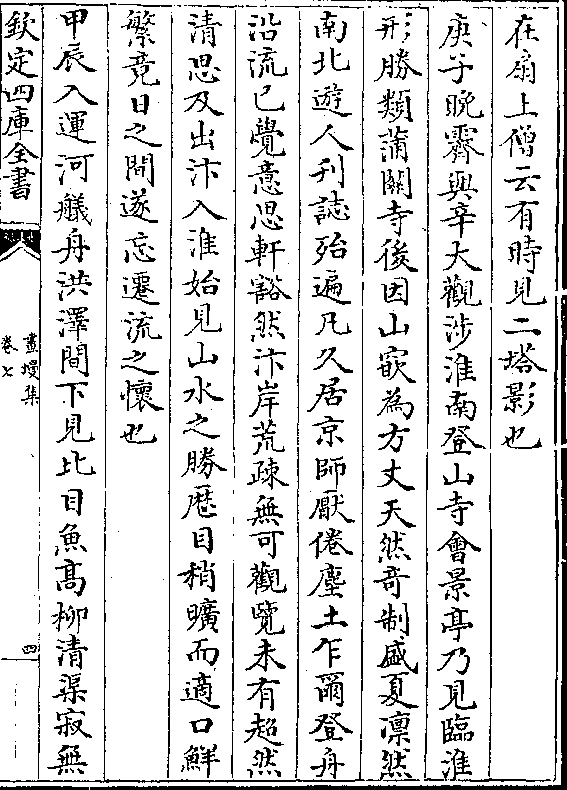 在扇上僧云有時見二塔影也
庚子晚霽與辛大觀涉淮南登山寺會景亭乃見臨淮
形勝類蒲關寺後因山嵌為方丈天然竒制盛夏凛然
南北遊人刋誌殆遍凡久居京師厭倦塵土乍爾登舟
沿流已覺意思軒豁然汴岸荒疎無可觀覽未有超然
清思及出汴入淮始見山水之勝歴目稍曠而適口鮮
繁竟日之間遂忘遷流之懷也
甲辰入運河艤舟洪澤間下見比目魚髙柳清渠寂無
欽定四庫全書
畫墁集
卷七
四